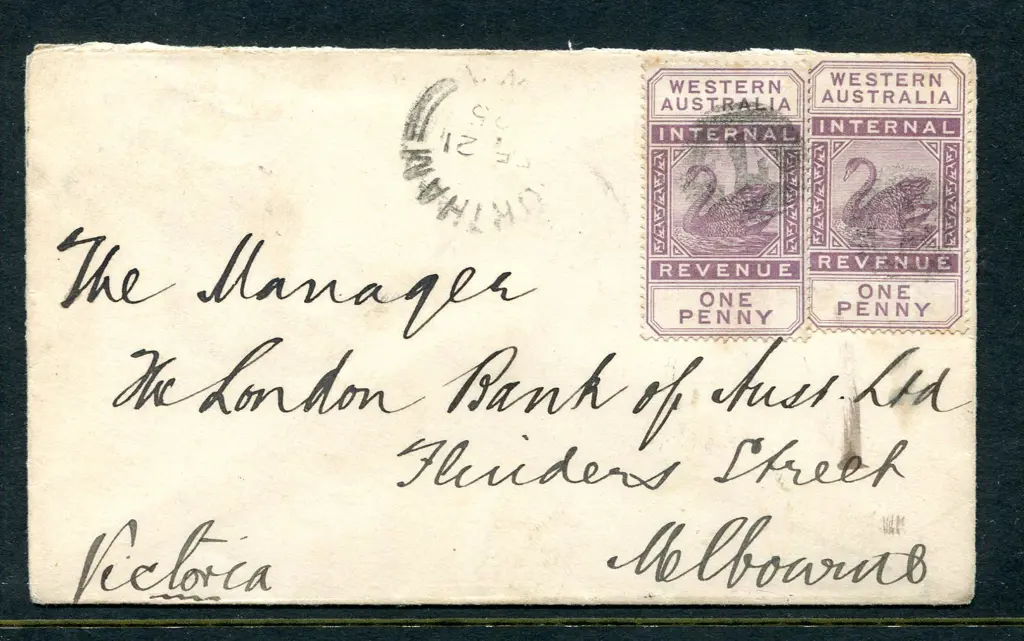 WESTERN
AUSTRALIA
INTERNAL
REVENUE
ONE
PENNY
WESTERN
AUSTRALIA
INTERNAL
REVENUE
ONE
PENNY
21
The Manager
The London Bank of Aust. Ltd
Flinders Street
Melbourne
Victoria